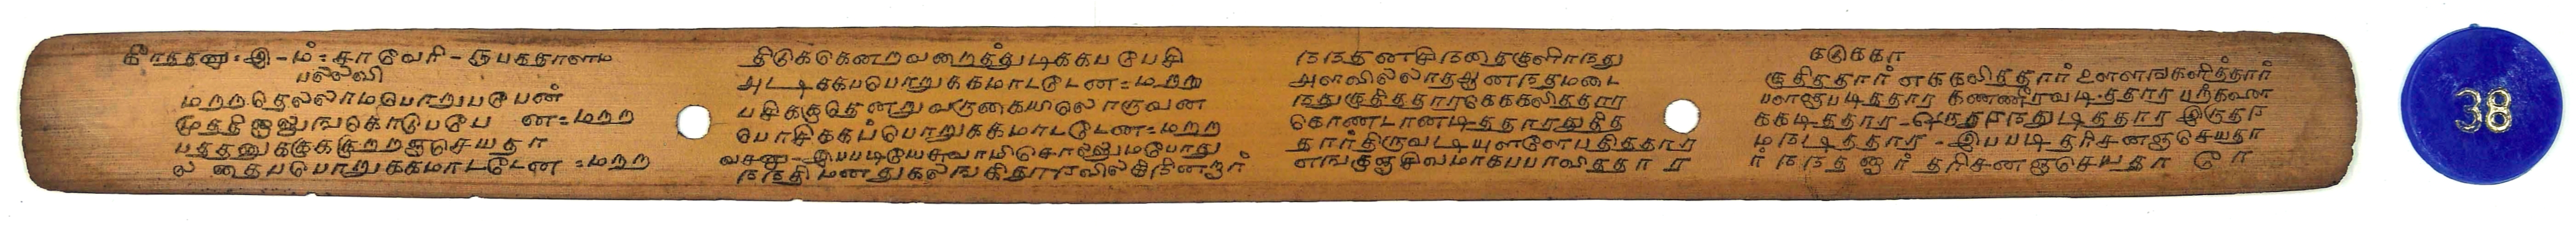 கீரததன: இ-ம்: சாவேரி - ரூபகதாளம
பல்லவி
மறறதெலலாமபொறுபபேன்
முததிஞஞானஙகொடுபபே ன = மறற
பததனுககுககுறறஞசெயதா
ல தைபபொறுககமாடடேன = மறற
திடுக்கெனறவறைத்துடிககபபேசி
அடடிககபபொறுககமாடடேன = மறறு
பசிககுதெனறுவருகையிலொருவன
பொசிககப்பொறுககமாடடேன = மறற
வசன - இபபடியேசுவாமிசொலலுமபோது
நநதிமனதுகலஙகிதூரவிலகிநினறார்
நநதனசிநதைகுளிரநது
அளவிலலாதஆனநதமடை
நதுகுதிததாரகெககலிததார
கொணடானடிததாரதுதித
தார்திருவடியுளளேபதிததார
எஙகுஞசிவமாகபபாவிததா ர
கடுககா
குதிததார் எககலிததார் உளளஙகளித்தார்
பலஞபடிததார கணணீரவடிததார பறகளை
ககடிததார - ஒருதரநதுடிததார இருதர
மநடிததார - இபபடி தரிசனஞசெயதா
ர் நநதனார் தரிசனஞசெயதா ரோ
38